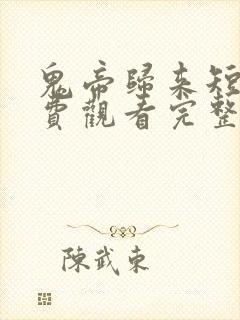 鬼帝歸來短
費觀看完整
陳武東